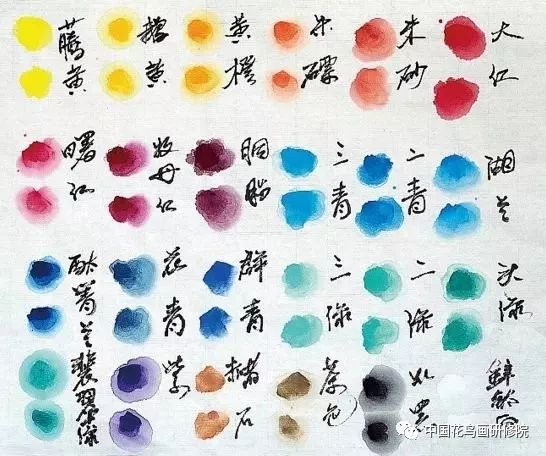 藤黄
鹅黄
黄橙
朱磦
朱砂
大红
曙红
牡丹红
胭脂
三青
二青
湖兰
酞菁兰
花青
群青
三绿
二绿
头绿
翡翠绿
紫
赭石
茶色
焦墨
锌钛白
中国花鸟画研修院